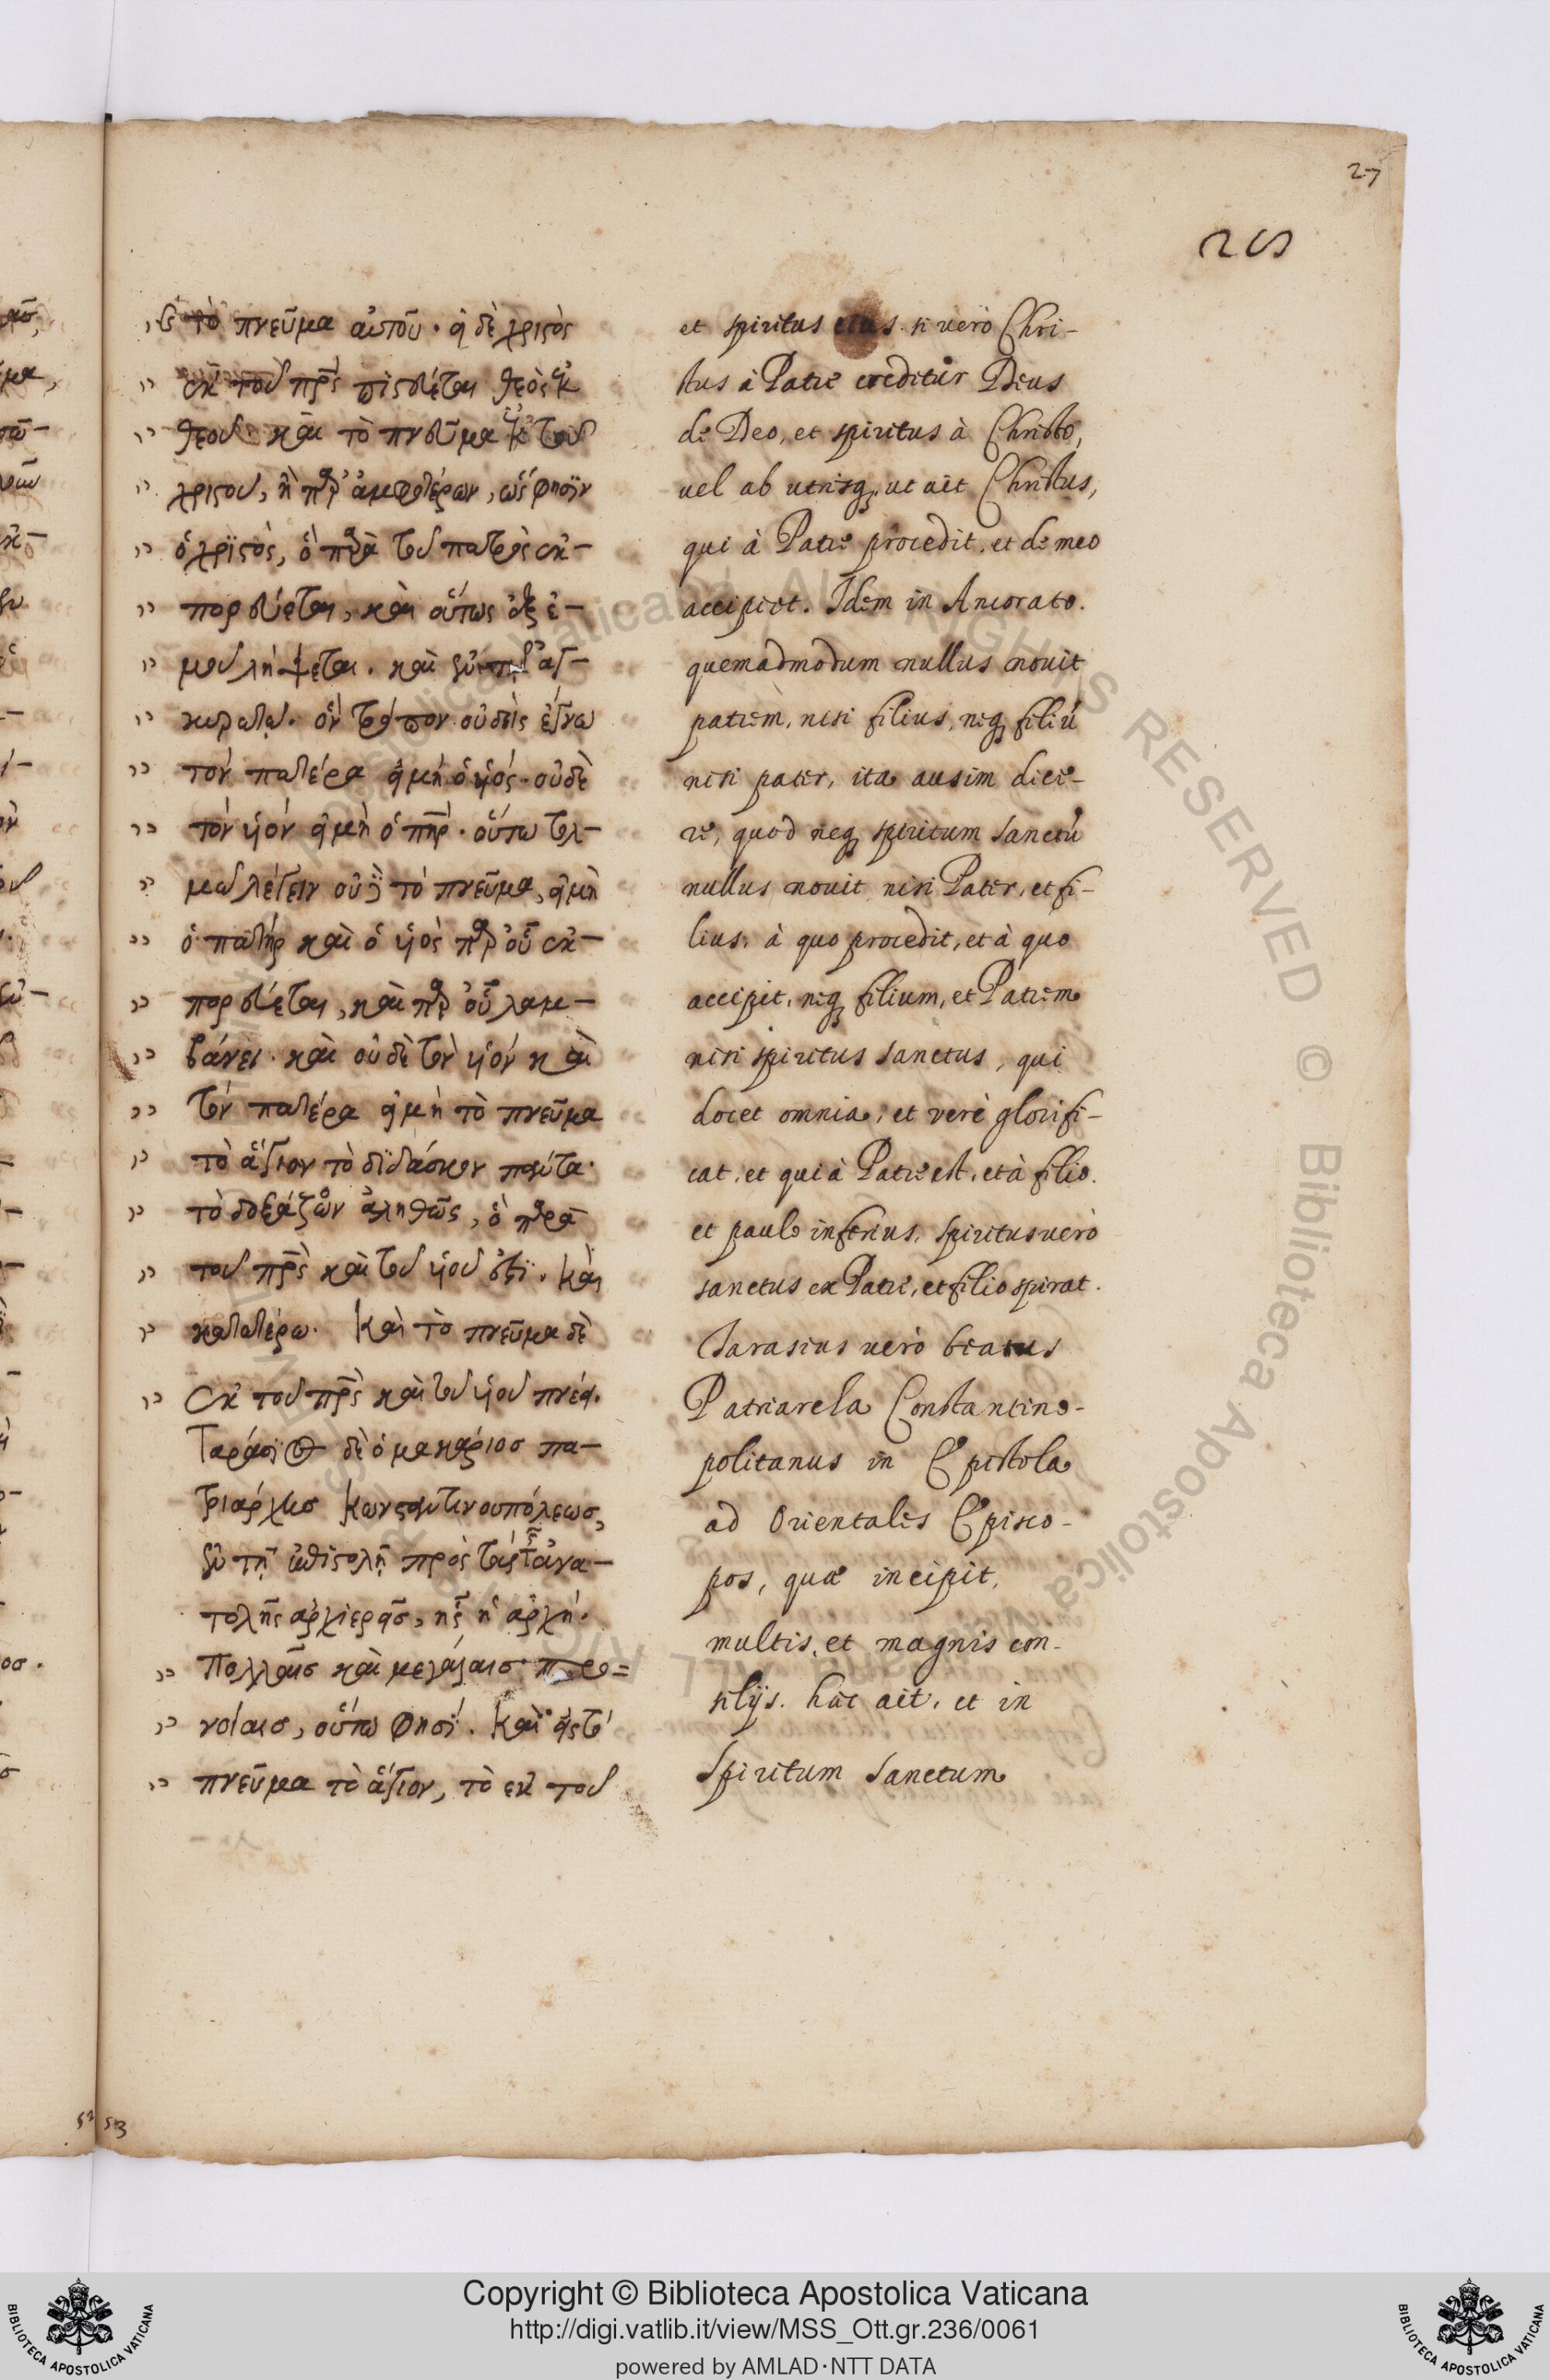 27
25
καὶ τὸ πνεῦμα αὐτοῦ. εἰ δὲ χριστὸς
ἐκ τοῦ πρ̅ς πιστεύεται θεὸς ἐκ
θεοῦ. καὶ τὸ πνεῦμα ἐκ τοῦ
χριστοῦ, ἢ παρ' ἀμφοτέρων, ὥς φησὶν
ὁ χριστὸς, ὃ παρὰ τοῦ πατρὸς ἐκ-
πορεύεται, καὶ οὗτος ἐξ ἐ-
μοῦ λήψεται. καὶ ἐν τῷ ἀγ-
κυρωτῷ. ὃν τρόπον οὐδεὶς ἔγνω
τὸν πατέρα εἰ μὴ ὁ υἱός. οὐδὲ
τὸν υἱὸν εἰ μὴ ὁ πη̅ρ. οὕτω τολ-
μῶ λέγειν οὐδὲ τὸ πνεῦμα, εἰ μὴ
ὁ πατὴρ καὶ ὁ υἱὸς παρ' οὗ ἐκ-
πορεύεται, καὶ παρ' οὗ λαμ-
βάνει. καὶ οὐδὲ τὸν υἱὸν καὶ
τὸν πατέρα εἰ μὴ τὸ πνεῦμα
τὸ ἅγιον τὸ διδάσκον πάντα.
τὸ δοξάζον ἀληθῶς, ὃ παρὰ
τοῦ πρ̅ς καὶ τοῦ υἱοῦ ἐστί. Καὶ
κατωτέρω. Καὶ τὸ πνεῦμα δὲ
ἐκ τοῦ πρ̅ς καὶ τοῦ υἱοῦ πνέει.
Ταράσιος δὲ ὁ μακάριος πα-
τριάρχης Κωνσταντινουπόλεως,
ἐν τῇ ἐπιστολῇ πρὸς τοὺς τῆς ἀνα-
τολῆς ἀρχιερεῖς, ἧς ἡ ἀρχή.
Πολλαῖς καὶ μεγάλαις προ=
νοίαις, οὕτω φησί. Καὶ εἰς τὸ
πνεῦμα τὸ ἅγιον, τὸ ἐκ τοῦ
et spiritus eius. si uerò Chri-
stus à Patre creditur Deus
de Deo, et spiritus à Christo,
uel ab utrisq, ut ait Christus,
qui à Patre procedit, et de meo
accipiet. Idem in Ancorato.
quemadmodum nullus nouit
patrem, nisi filius, neq filiū
nisi pater, ita ausim dice-
re, quod neq spiritum sanctū
nullus nouit nisi Pater, et fi-
lius, à quo procedit, et à quo
accipit, neq filium, et Patrem
nisi spiritus sanctus, qui
docet omnia, et verè glorifi-
cat, et qui à Patre est, et à filio.
et paulo inferius, spiritus uerò
sanctus ex Patre, et filio spirat.
Tarasius uerò beatus
Patriarcha Constantino-
politanus in Epistola
ad Orientales Episco-
pos, quæ incipit,
multis, et magnis con-
silijs. hæc ait, et in
Spiritum Sanctum
52 53
Copyright © Biblioteca Apostolica Vaticana
http://digi.vatlib.it/view/MSS_Ott.gr.236/0061
powered by AMLAD·NTT DATA